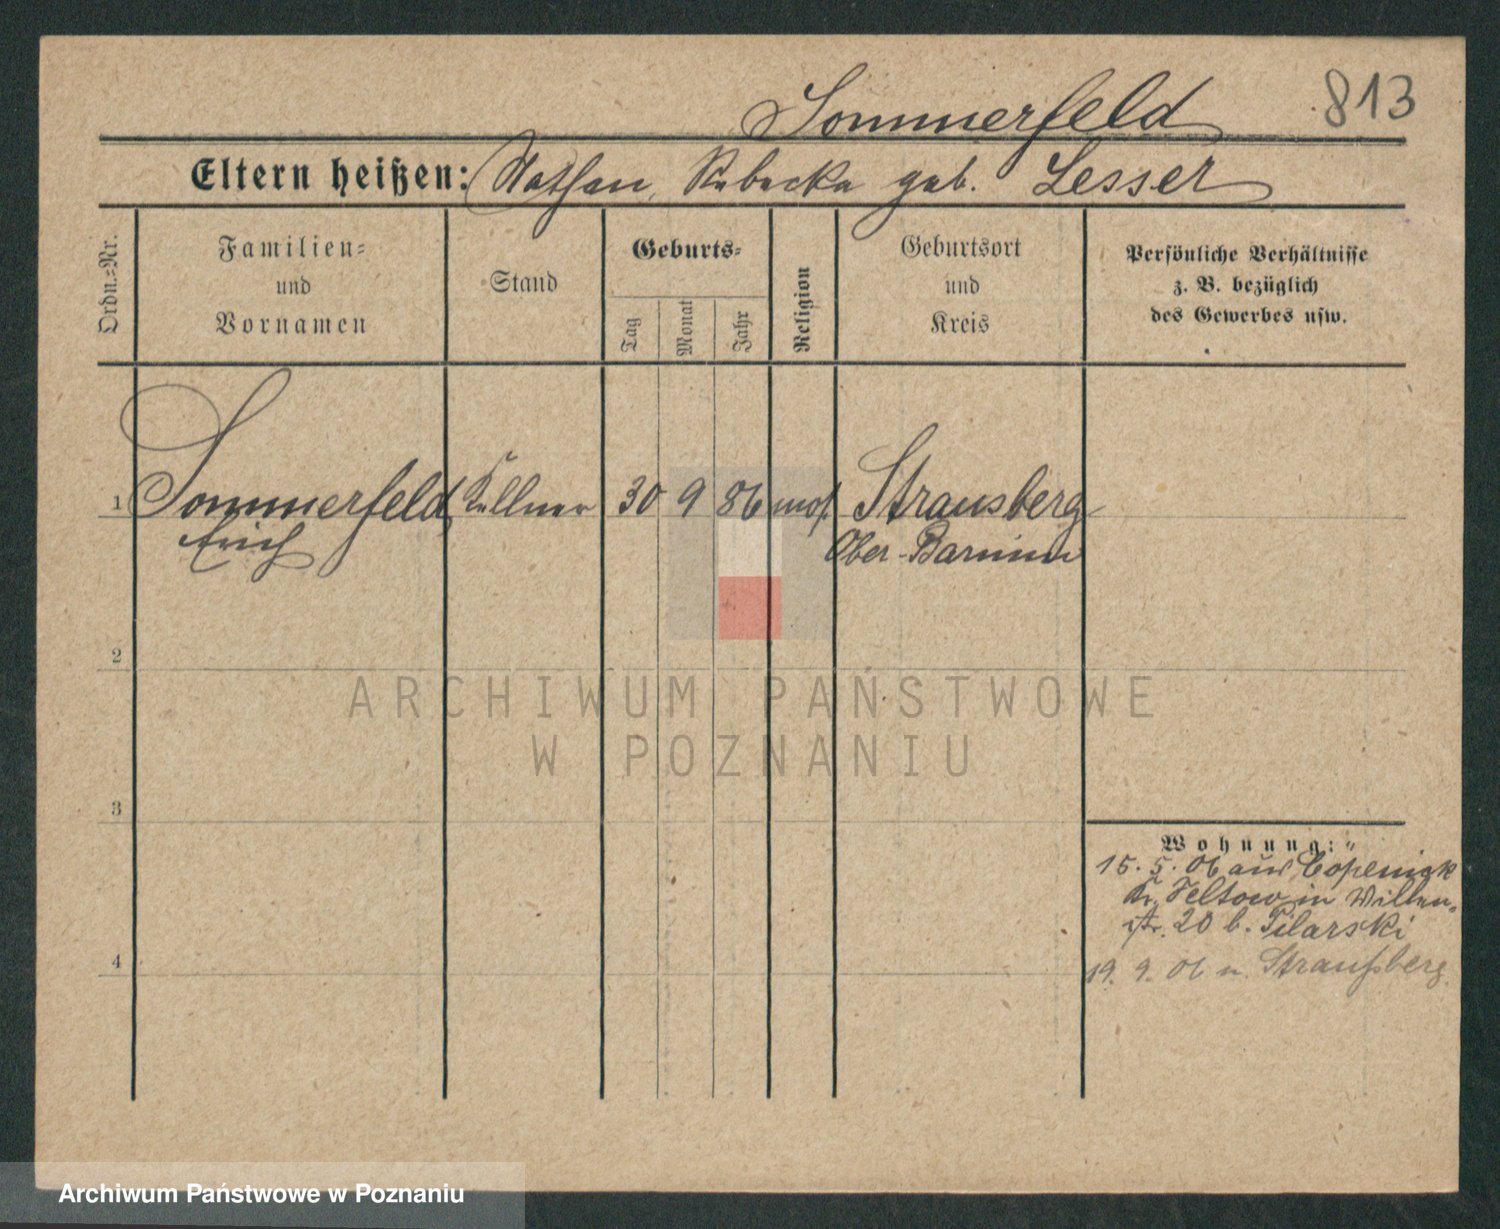 813
Sommerfeld
Eltern heißen: Nathan, Rebecka geb. Lesser
Ordn.-Nr.
Familien- und Vornamen
Stand
Geburts-
Tag
Monat
Jahr
Religion
Geburtsort und Kreis
Persönliche Verhältnisse
z. B. bezüglich
des Gewerbes usw.
1 Sommerfeld Kellner 30 9 86 mos. Strausberg
Erich Ober-Barnim
2
3
4
Wohnung:
15. 5. 06 aus Copenick
Kr. Teltow in
str. 20 b. Pilarski
19. 9. 06 n. Straußberg
ARCHIWUM PAŃSTWOWE
W POZNANIU
Archiwum Państwowe w Poznaniu